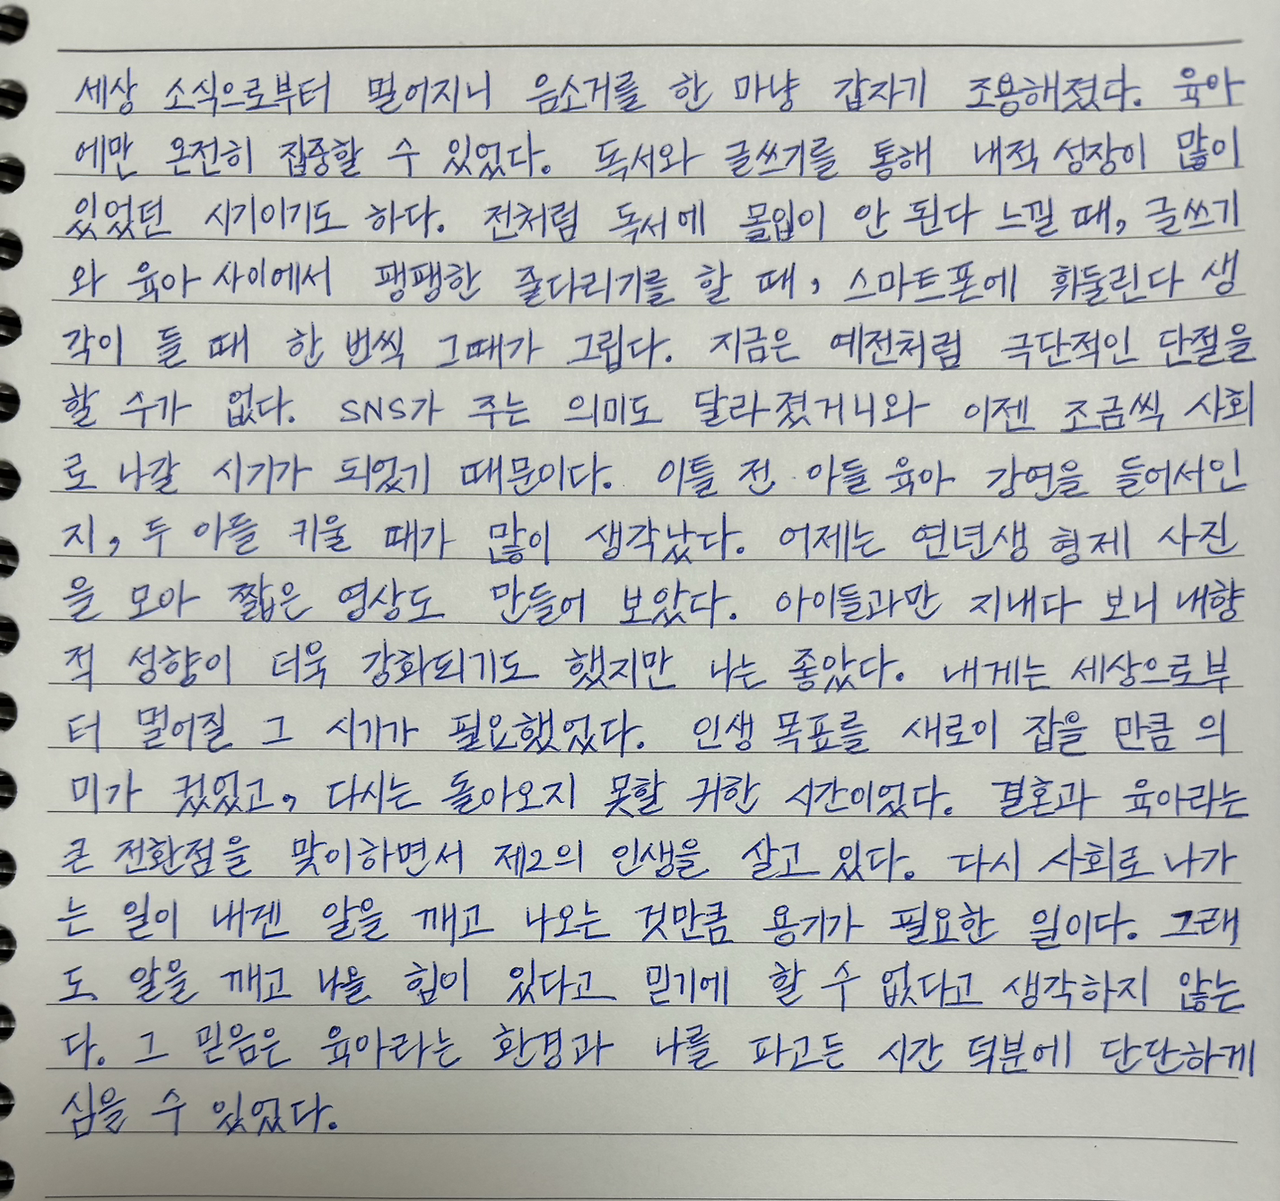 세상 소식으로부터 멀어지니 음소거를 한 마냥 갑자기 조용해졌다. 육아
에만 온전히 집중할 수 있었다. 독서와 글쓰기를 통해 내적 성장이 많이
있었던 시기이기도 하다. 전처럼 독서에 몰입이 안 된다 느낄 때, 글쓰기
와 육아 사이에서 팽팽한 줄다리기를 할 때, 스마트폰에 휘둘린다 생
각이 들 때 한 번씩 그때가 그립다. 지금은 예전처럼 극단적인 단절을
할 수가 없다. SNS가 주는 의미도 달라졌거니와 이젠 조금씩 사회
로 나갈 시기가 되었기 때문이다. 이틀 전 아들 육아 강연을 들어서인
지, 두 아들 키울 때가 많이 생각났다. 어제는 연년생 형제 사진
을 모아 짧은 영상도 만들어 보았다. 아이들과만 지내다 보니 내향
적 성향이 더욱 강화되기도 했지만 나는 좋았다. 내게는 세상으로부
터 멀어질 그 시기가 필요했었다. 인생 목표를 새로이 잡을 만큼 의
미가 컸었고, 다시는 돌아오지 못할 귀한 시간이었다. 결혼과 육아라는
큰 전환점을 맞이하면서 제2의 인생을 살고 있다. 다시 사회로 나가
는 일이 내겐 알을 깨고 나오는 것만큼 용기가 필요한 일이다. 그래
도 알을 깨고 나올 힘이 있다고 믿기에 할 수 없다고 생각하지 않는
다. 그 믿음은 육아라는 환경과 나를 파고든 시간 덕분에 단단하게
심을 수 있었다.